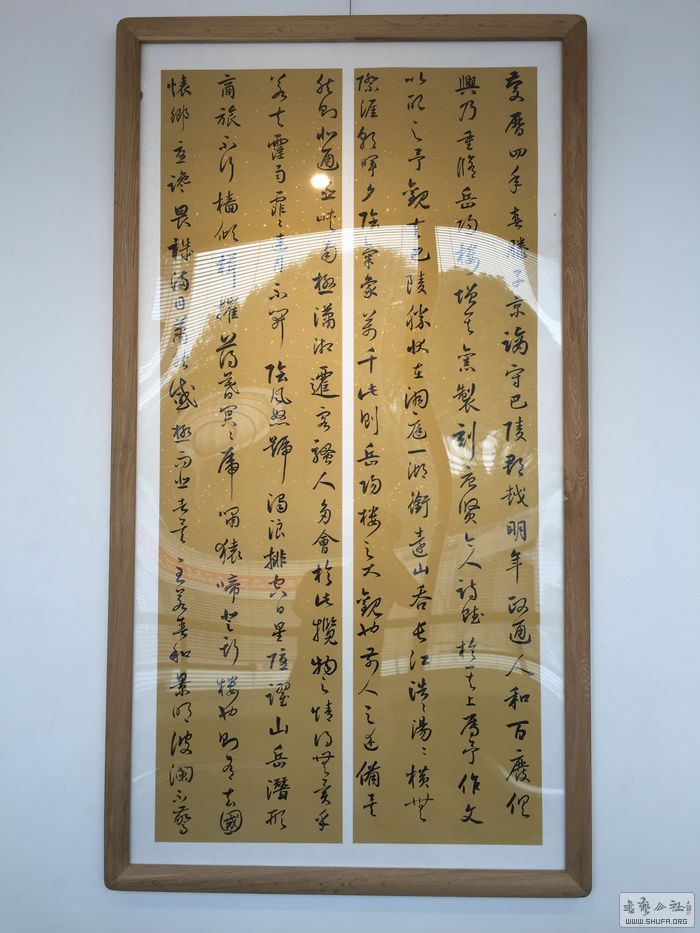 慶曆四年春滕子京謫守巴陵郡越明年政通人和百廢俱
興乃重修岳陽樓增其舊製刻唐賢今人詩賦於其上屬予作文
以記之予觀夫巴陵勝狀在洞庭一湖銜遠山吞長江浩浩湯湯橫無
際涯朝暉夕陰氣象萬千此則岳陽樓之大觀也前人之述備矣
然則北通巫峽南極瀟湘遷客騷人多會於此攬物之情得無異乎
若夫霪雨霏霏連月不開陰風怒號濁浪排空日星隱耀山岳潛形
商旅不行檣傾楫摧薄暮冥冥虎嘯猿啼登斯樓也則有去國
懷鄉憂讒畏譏滿目蕭然感極而悲者矣至若春和景明波瀾不驚
書藝公社
WWW.SHUFA.ORG